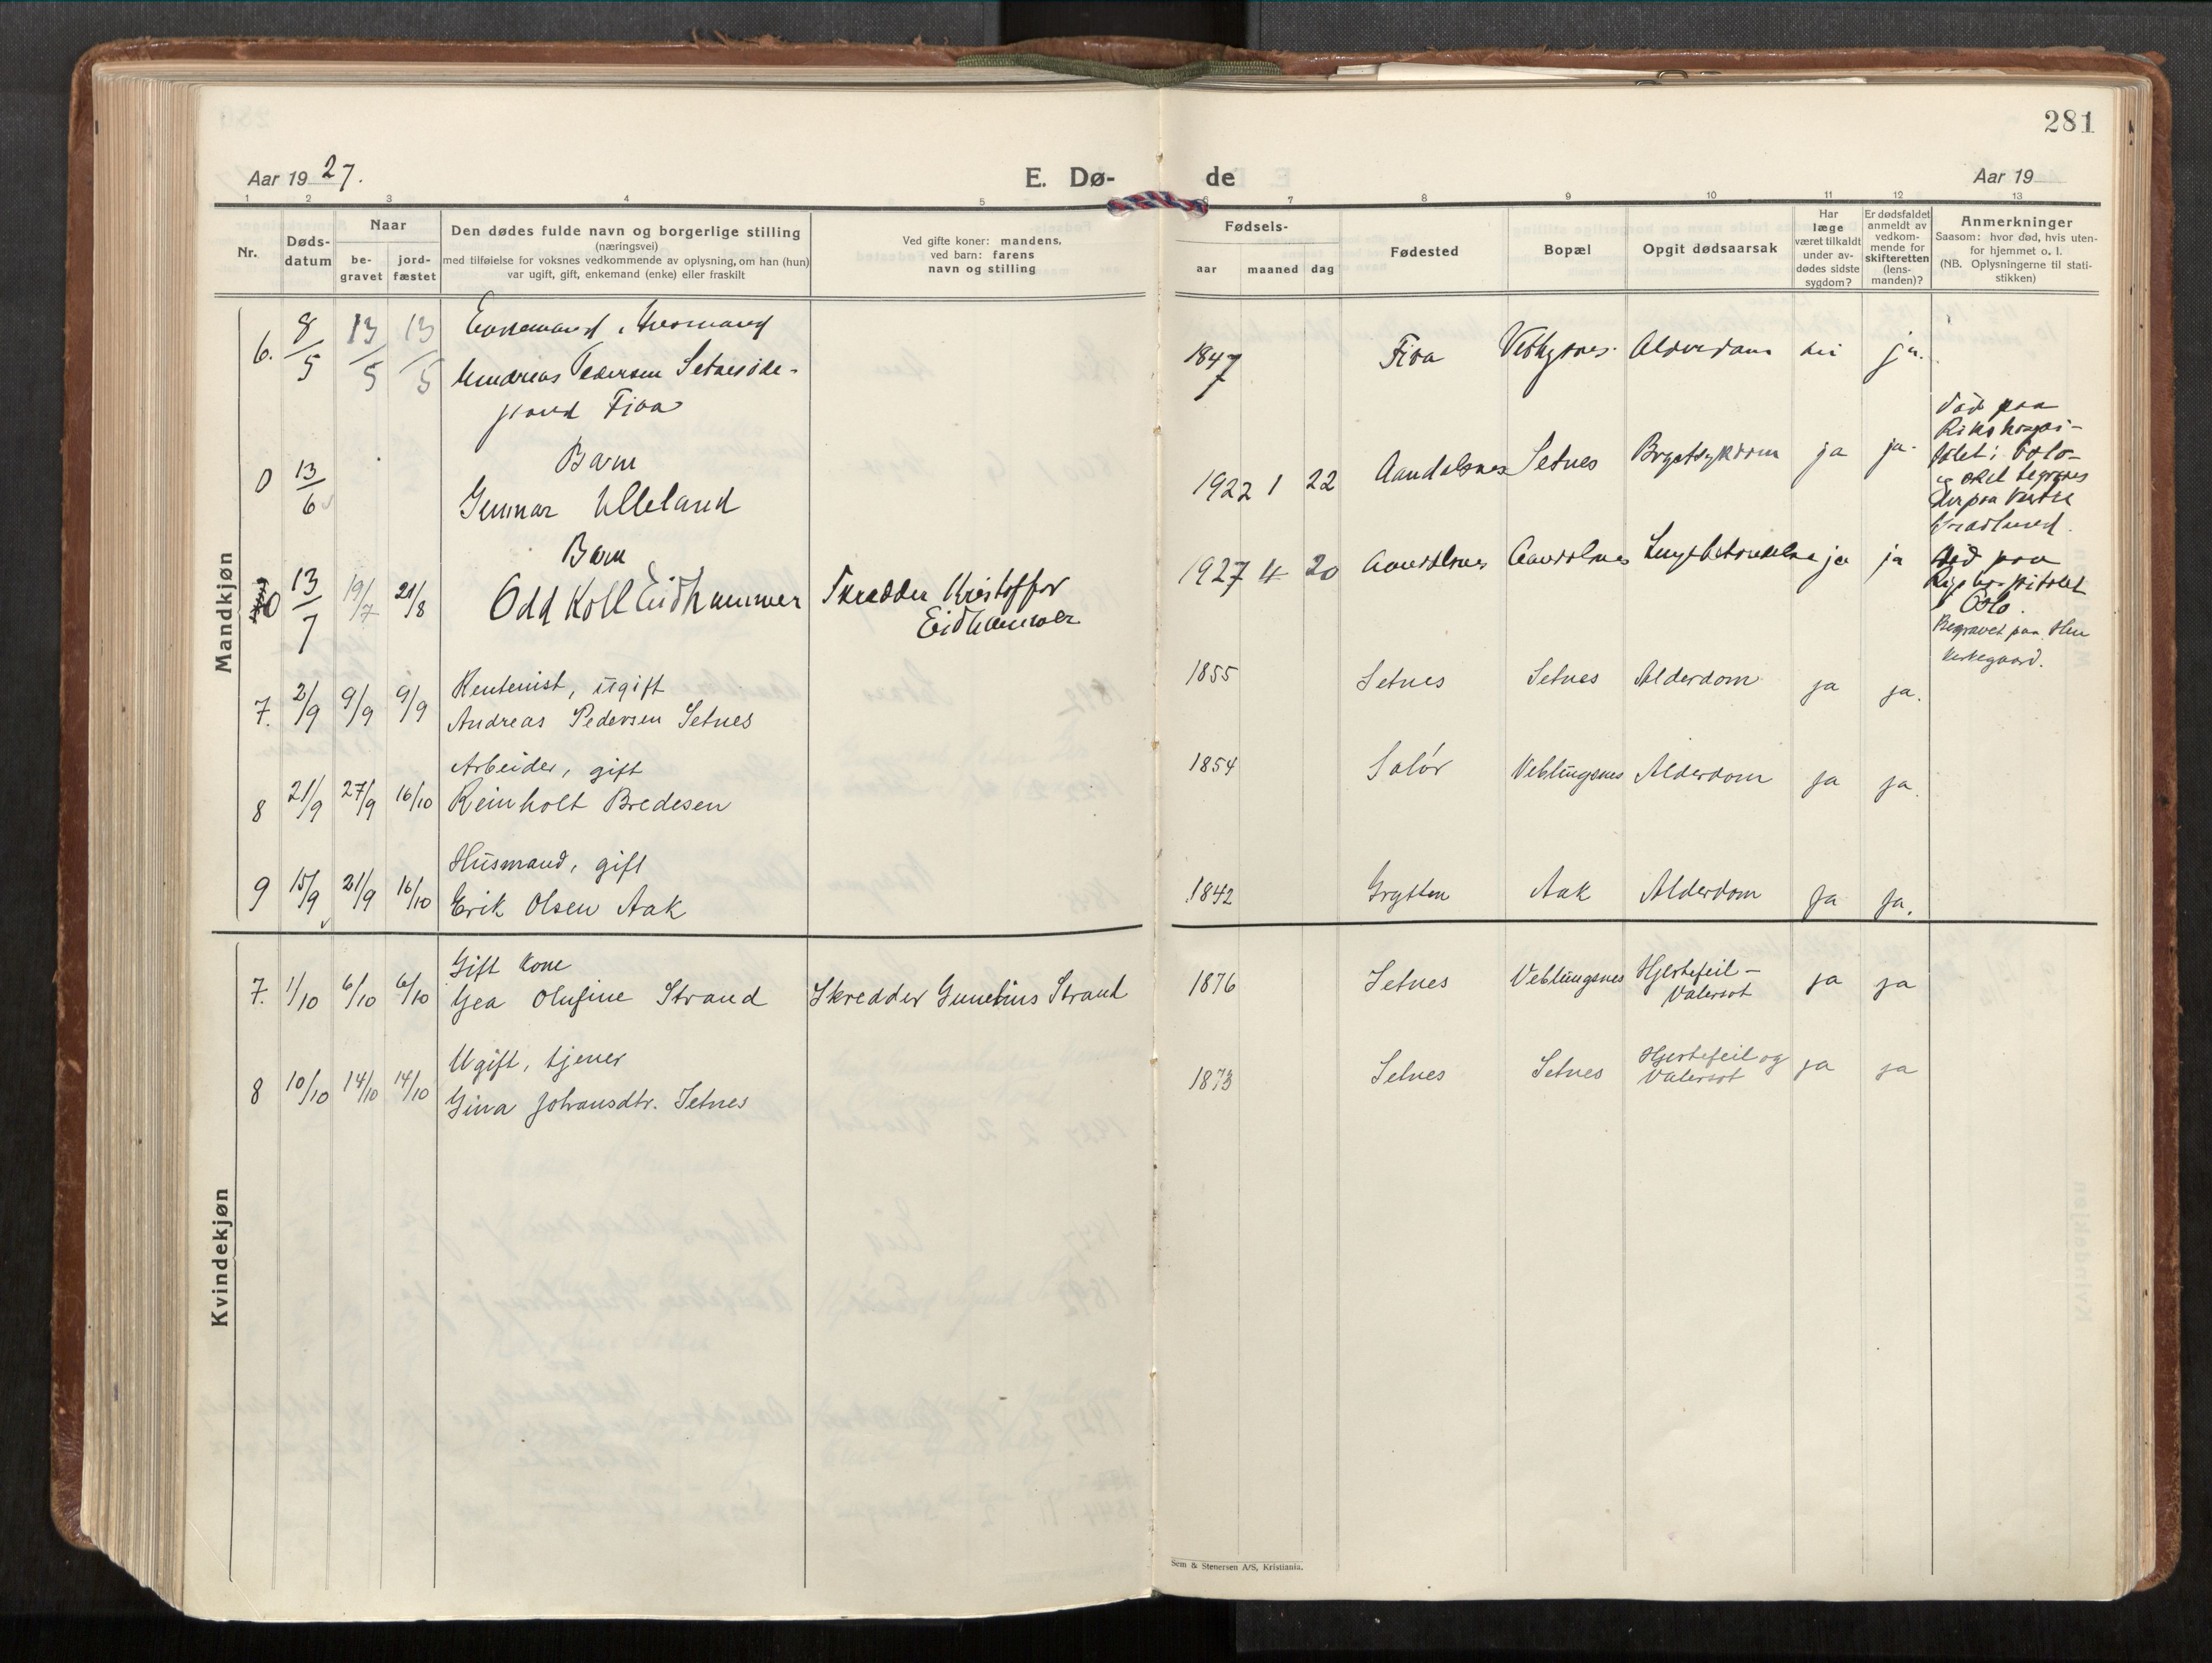 281
Aar 1927.
E. Dø-
de
Aar 19
1 2 3 4 5 6 7 8 9 10 11 12 13
Nr.
Døds-
datum
Naar
be-
gravet
jord-
fæstet
Den dødes fulde navn og borgerlige stilling
(næringsvei)
med tilføielse for voksnes vedkommende av oplysning, om han (hun)
var ugift, gift, enkemand (enke) eller fraskilt
Ved gifte koner: mandens,
ved barn: farens
navn og stilling
Fødsels-
aar maaned dag
Fødested
Bopæl
Opgit dødsaarsak
Har
læge
været tilkaldt
under av-
dødes sidste
sygdom?
Er dødsfaldet
anmeldt av
vedkom-
mende for
skifteretten
(lens-
manden)?
Anmerkninger
Saasom: hvor død, hvis uten-
for hjemmet o. l.
(NB. Oplysningerne til stati-
stikken)
Mandkjøn
6. 8/5 13/5 13/5
Andreas Pedersen Setnesøde-
Fiva
1847 Fiva Alderdom nei ja.
0 13/6
Barn
Gunnar Ulleland
1922 1 22 Aandalsnes Setnes Brystsykdom ja ja.
Død paa
Rikshospi-
talet i Oslo
og skal begraves
der paa Vestre
0 13/7 19/7 21/8
Barn
Odd Koll Eidhammer
Skrædder Kristoffer
Eidhammer
1927 4 20 Aandalsnes Aandalsnes Lungebetændelse ja ja
død paa
Rigshospitalet
i Oslo.
Begravet paa Hen
kirkegaard.
7. 2/9 9/9 9/9
Rentenist, ugift
Andreas Pedersen Setnes
1855 Setnes Setnes Alderdom ja ja.
8 21/9 27/9 16/10
Arbeider, gift
Reinholt Bredesen
1854 Solør Veblungsnes Alderdom ja ja.
9 15/9 21/9 16/10
Husmand, gift
Erik Olsen Aak
1842 Grytten Aak Alderdom Ja Ja.
Kvindekjøn
7. 1/10 6/10 6/10
Gift kone
Gea Olufine Strand
Skredder Gunelius Strand
1876 Setnes Veblungsnes Hjertefeil-
Vatersot
ja ja
8 10/10 14/10 14/10
Ugift, tjener
Gina Johansdtr. Setnes
1873 Setnes Setnes Hjertefeil og
Vatersot
ja ja
Sem & Stenersen A/S, Kristiania.